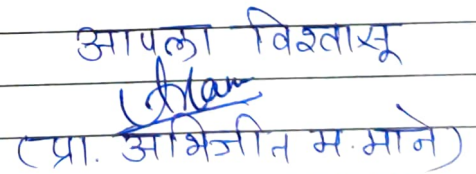 आपला विश्वासू
(प्रा. अभिजीत म. माने)